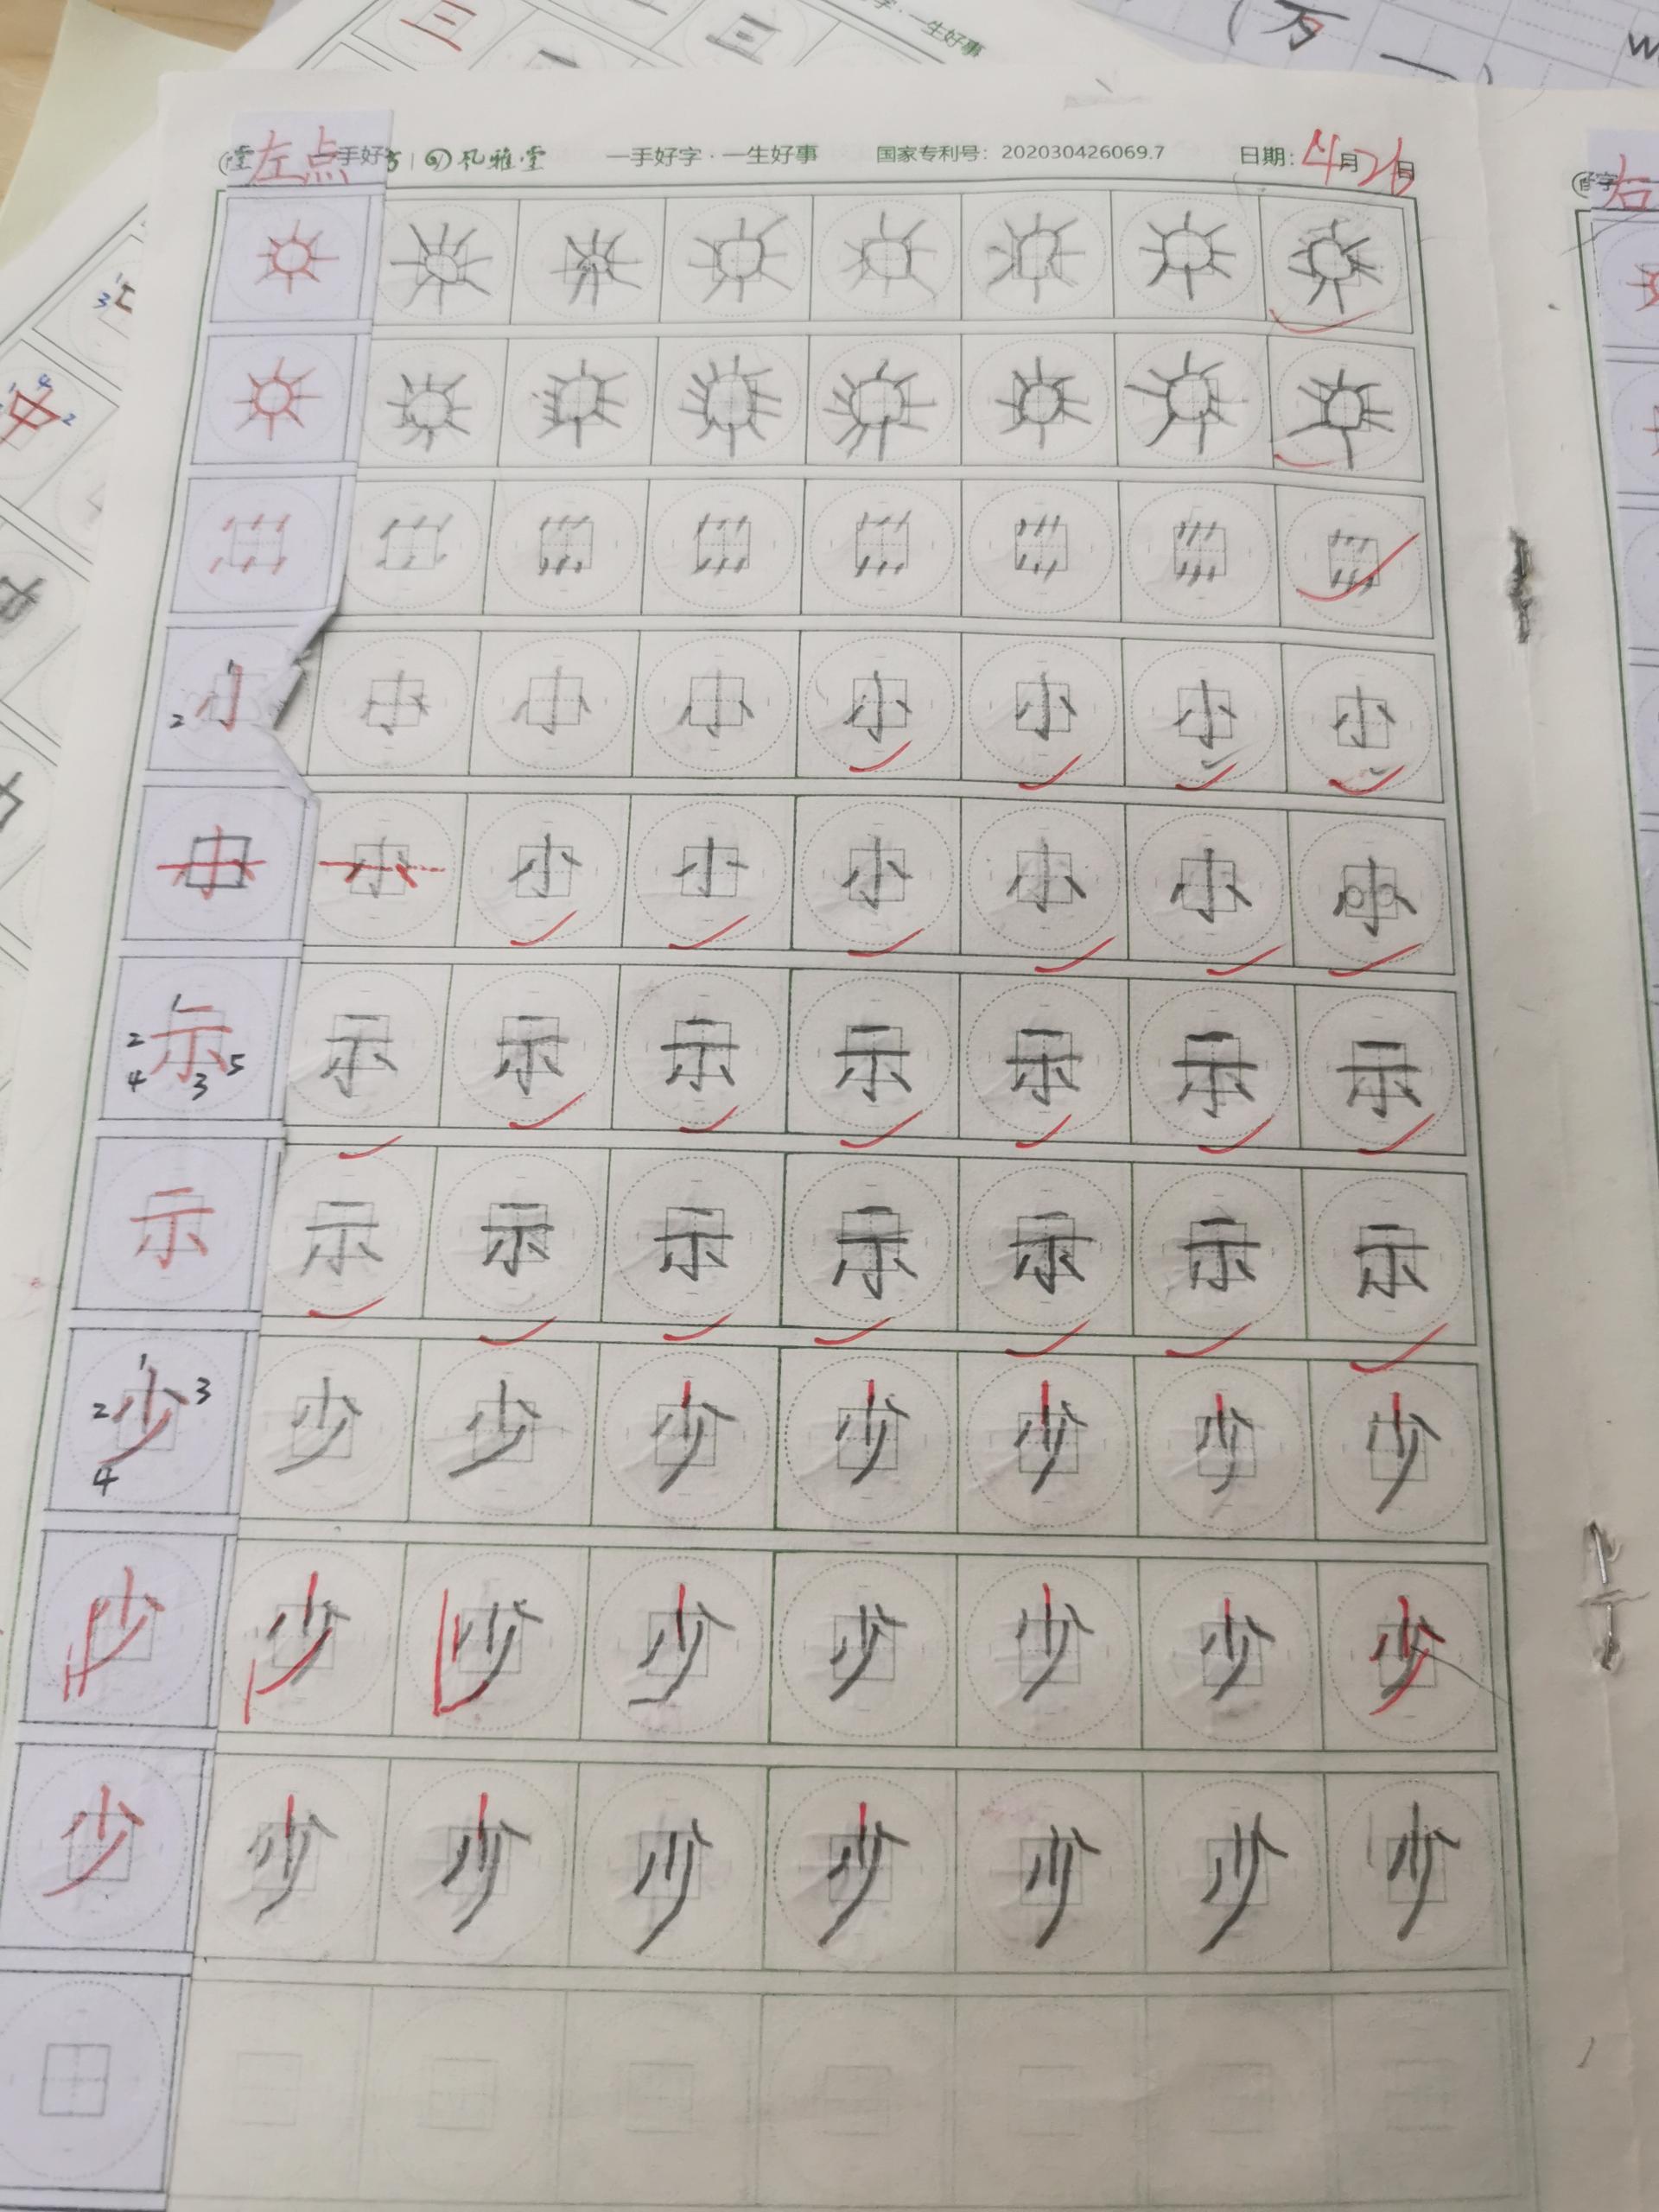 一生好事
万 一
左点 手好 风雅堂 一手好字·一生好事 国家专利号: 202030426069.7 日期: 4月26日
右
小 小 小 小 小 小 小 小
小 小 小 小 小 小 小 小
示 示 示 示 示 示 示 示
1 2 3 4 5
示 示 示 示 示 示 示 示
少 少 少 少 少 少 少 少
1 2 3 4
少 少 少 少 少 少 少 少
少 少 少 少 少 少 少 少